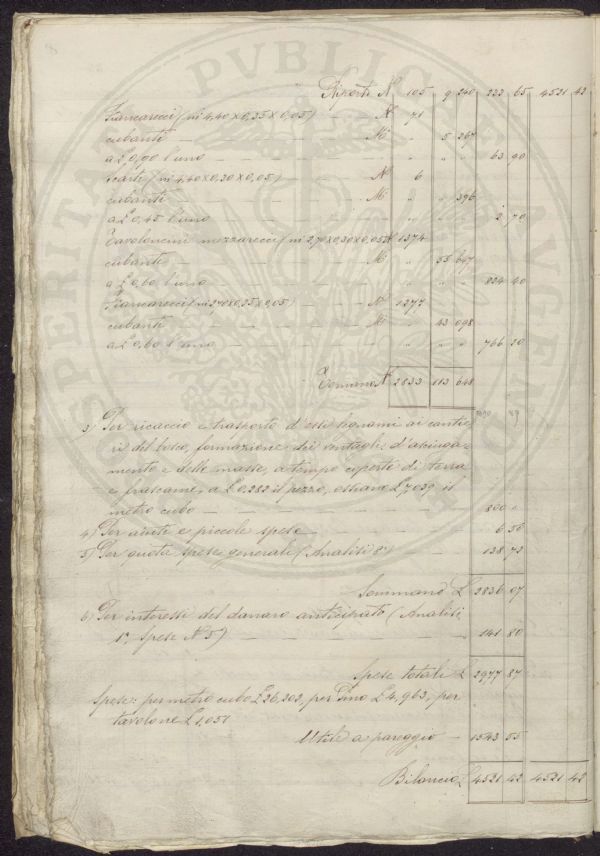 Riporto N. 105 9 240 222 65 4521 42
Francarecci (m 4,40 x 0,25 x 0,05) N 71
cubanti M " 5 267
a £ 0,90 l'uno " " " 63 90
Scarti (m 4,40 x 0,20 x 0,05) N 6
cubanti M " " 396
a £ 0,45 l'uno " " " 2 70
Tavoloncini mezzarecci (m 2,70 x 0,30 x 0,05) N 1374
cubanti M " 55 647
a £ 0,60 l'uno " " " 824 40
Francarecci (m 2,70 x 0,25 x 0,05) N 1277
cubanti M " 43 098
a £ 0,60 l'uno " " " 766 20
Tornano N. 2833 113 648
3) Per ricaccio e trasporto d'essi legnami ai cantie-
ri del bosco, formazione dei ventagli d'asciuga-
mento e delle masse, a tempo coperte di terra
e frascame, a £ 0,282 il pezzo, ossiano £ 7,039 il
metro cubo 800 "
4) Per aiuti e piccole spese 6 56
5) Per quota spese generali (Analisi 8ª) 138 73
Sommano £ 2836 07
6) Per interessi del danaro anticipato (Analisi
1ª, spese N. 5) 141 80
Spese totali £ 2977 87
Spese: per metro cubo £ 26,202, per Pino £ 4,963, per
tavolone £ 1,051
Utile a pareggio 1543 55
Bilancio £ 4521 42 4521 42
PVBLICAE
AVGENDAE